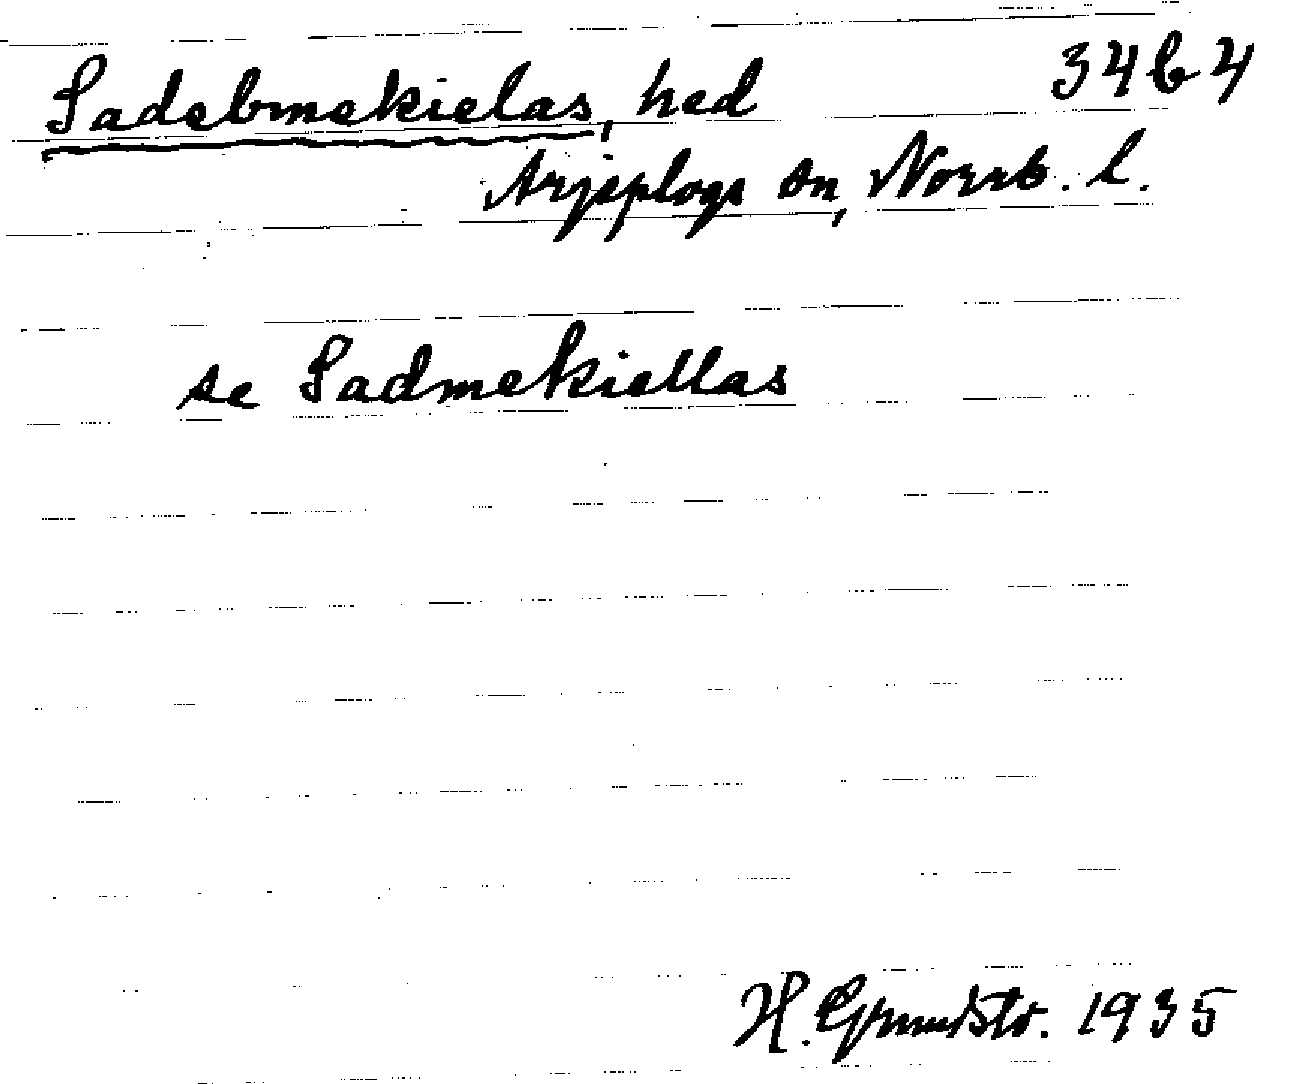 Sadebmekielas, hed 34b4
Arjeplogs sn, Norrb. l.
se Sadmekiellas
H. Grundstr. 1935